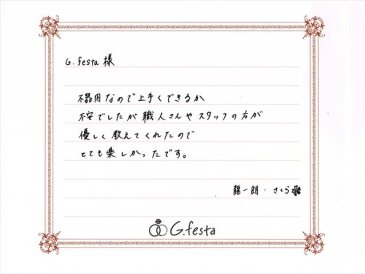 G.festa 様
不器用なので上手くできるか
不安でしたが職人さんやスタッフの方が
優しく教えてくれたので
とても楽しかったです。
藤一朗・さくら
G.festa